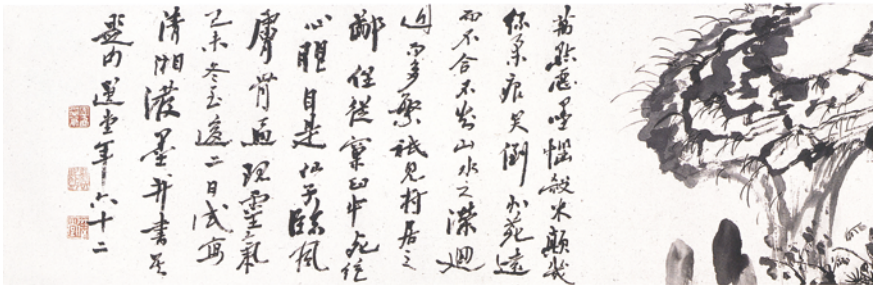 萬點惡墨惱殺米顛幾
絲柔痕笑倒北苑遠
而不合不知山水之瀠迴
近而多繁祇見村居之
鄙俚從窠臼中死絕
心眼自是仙子臨風
膚骨逼現靈氣
己未冬至後二日試寫
清湘潑墨并書其
題句選堂年六十二